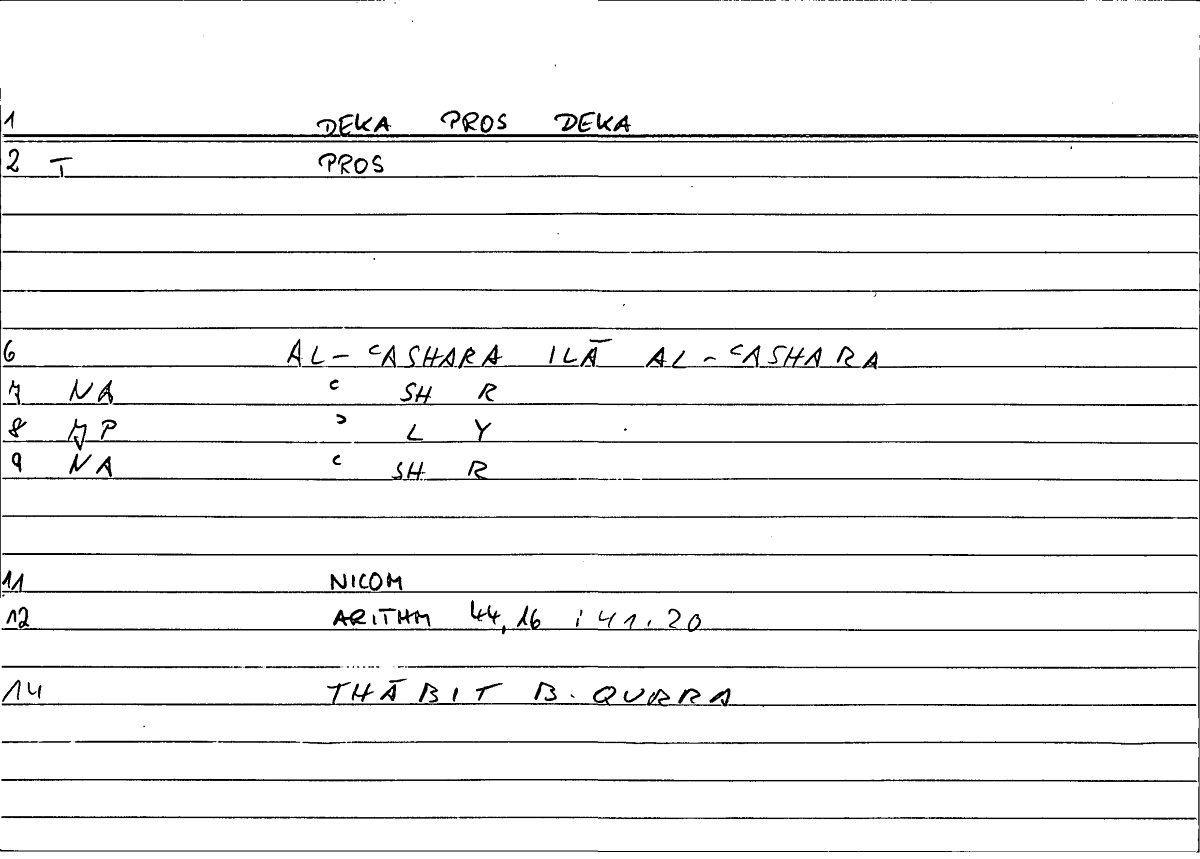 1 DEKA PROS DEKA
2 T PROS
6 AL-ʿASHARA ILĀ AL-ʿASHARA
7 NA ʿ SH R
8 JP ʾ L Y
9 NA ʿ SH R
11 NICOM
12 ARITHM 44,16 ; 41.20
14 THĀBIT B. QURRA